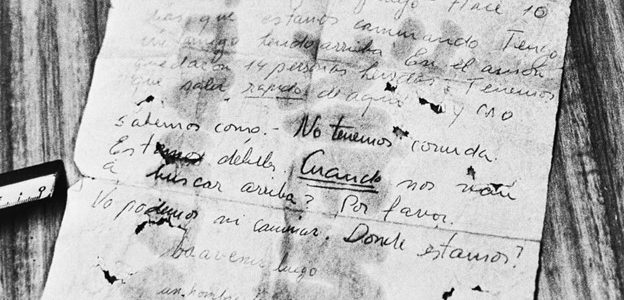 Hace 10
días que estamos caminando. Tengo
un amigo herido arriba. En el avión
quedaron 14 personas heridas. Tenemos
que salir rapido de aquí y no
sabemos como.- No tenemos comida.
Estamos débiles. Cuando nos van
a buscar arriba? Por favor.
No podemos ni caminar. Donde estamos?
venir luego
un hombre